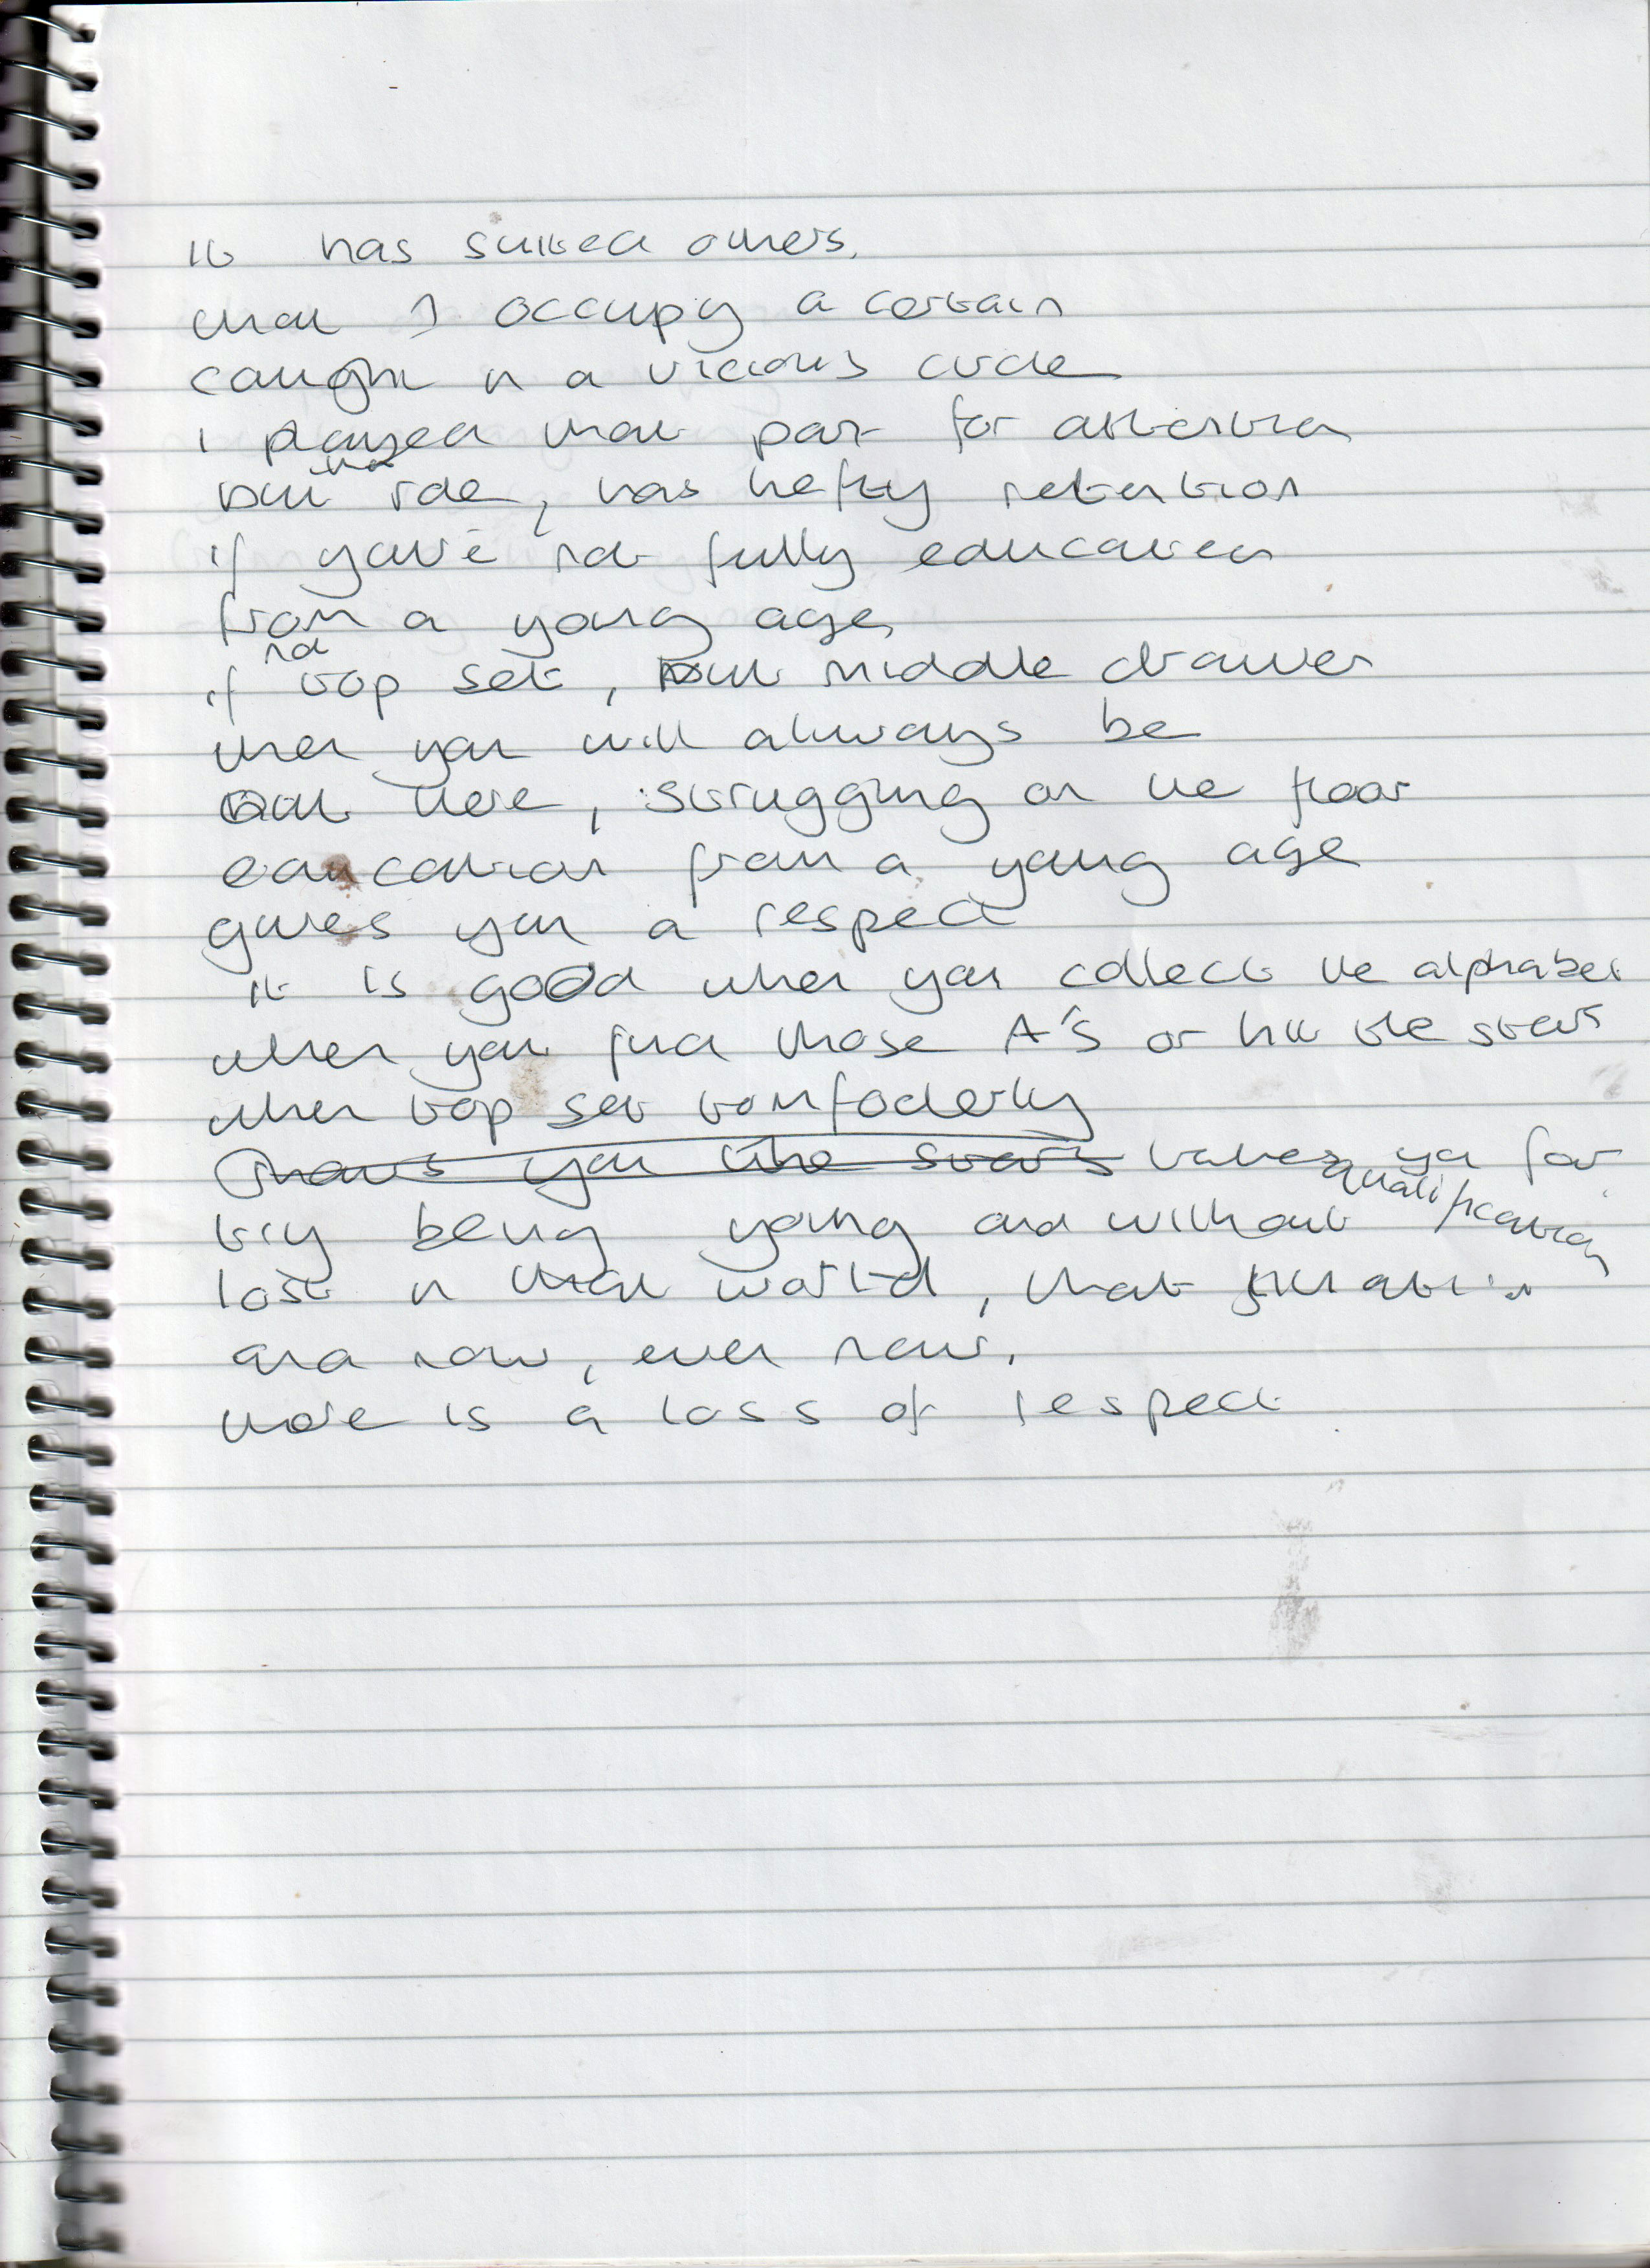 It has suited others,
that I occupy a certain
caught in a vicious circle
I played that part for attention
but the role, has hefty retention
if you've not fully education
from a young age,
if not top set, but middle drawer
then you will always be
out there, scrugging on the floor
education from a young age
gives you a respect
it is good when you collect the alphabet
when you find those A's or hit the stars
when top set
thats you the stars takes you far
try being young and without qualification
lost in that world, that
and now, even now,
there is a loss of respect